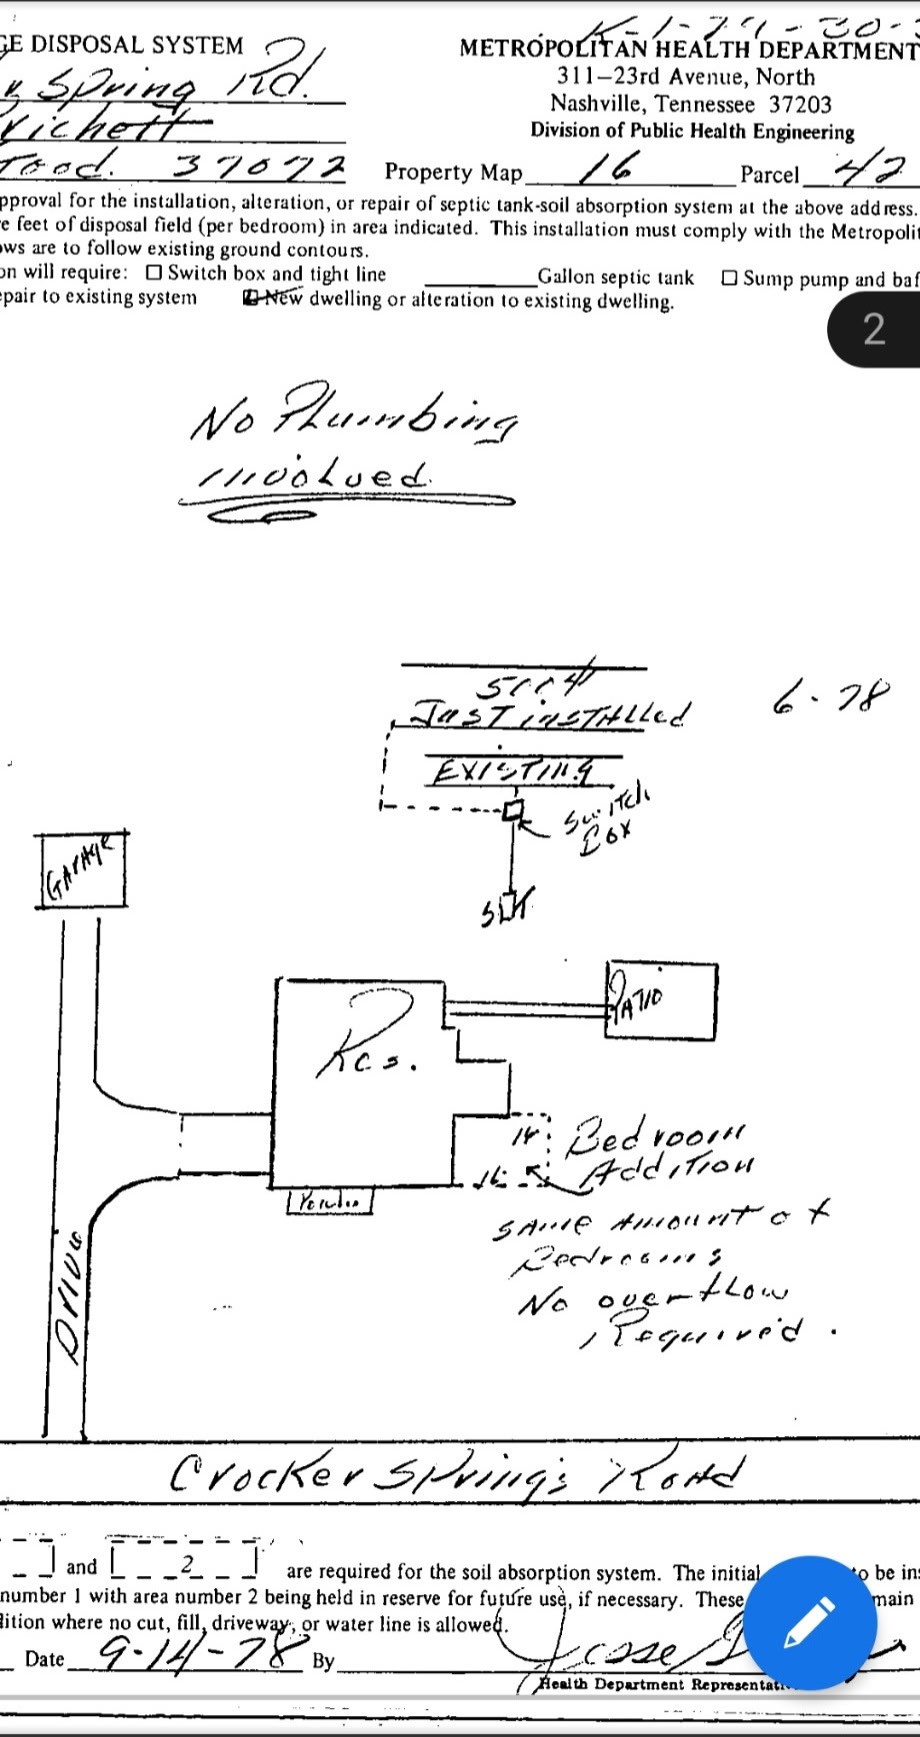 GE DISPOSAL SYSTEM
Spring Rd.
METROPOLITAN HEALTH DEPARTMENT
311–23rd Avenue, North
Nashville, Tennessee 37203
Division of Public Health Engineering
37072
Property Map 16 Parcel 42
pproval for the installation, alteration, or repair of septic tank-soil absorption system at the above address.
e feet of disposal field (per bedroom) in area indicated. This installation must comply with the Metropolit
ws are to follow existing ground contours.
on will require: ☐ Switch box and tight line Gallon septic tank ☐ Sump pump and baf
epair to existing system New dwelling or alteration to existing dwelling.
2
No Plumbing
involved.
Just installed
6-78
EXISTING
Switch
Box
GARAGE
PATIO
Res.
14 Bedroom
Addition
Porch
SAME AMOUNT of
Bedrooms
No overflow
Required.
Drive
Crocker Springs Road
and 2 are required for the soil absorption system. The initial to be in
number 1 with area number 2 being held in reserve for future use, if necessary. These main
dition where no cut, fill, driveway, or water line is allowed.
Date 9-14-78 By Jesse
Health Department Representati